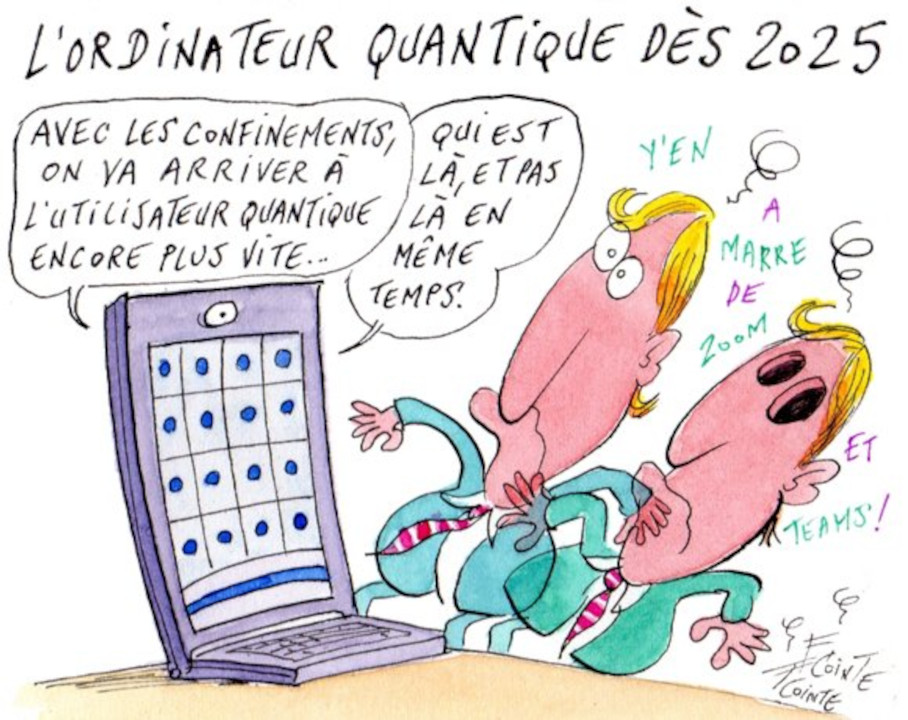 L'ORDINATEUR QUANTIQUE DÈS 2025
AVEC LES CONFINEMENTS,
ON VA ARRIVER À
L'UTILISATEUR QUANTIQUE
ENCORE PLUS VITE...
QUI EST
LÀ, ET PAS
LÀ EN
MÊME
TEMPS!
Y'EN
A
MARRE
DE
ZOOM
ET
TEAMS!
F COINTE
COINTE